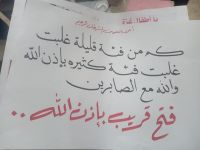 يا أطفال غزة
كم من فئة قليلة غلبت
غلبت فئة كثيره بإذن الله
والله مع الصابرين
فتح قريب بإذن الله ..